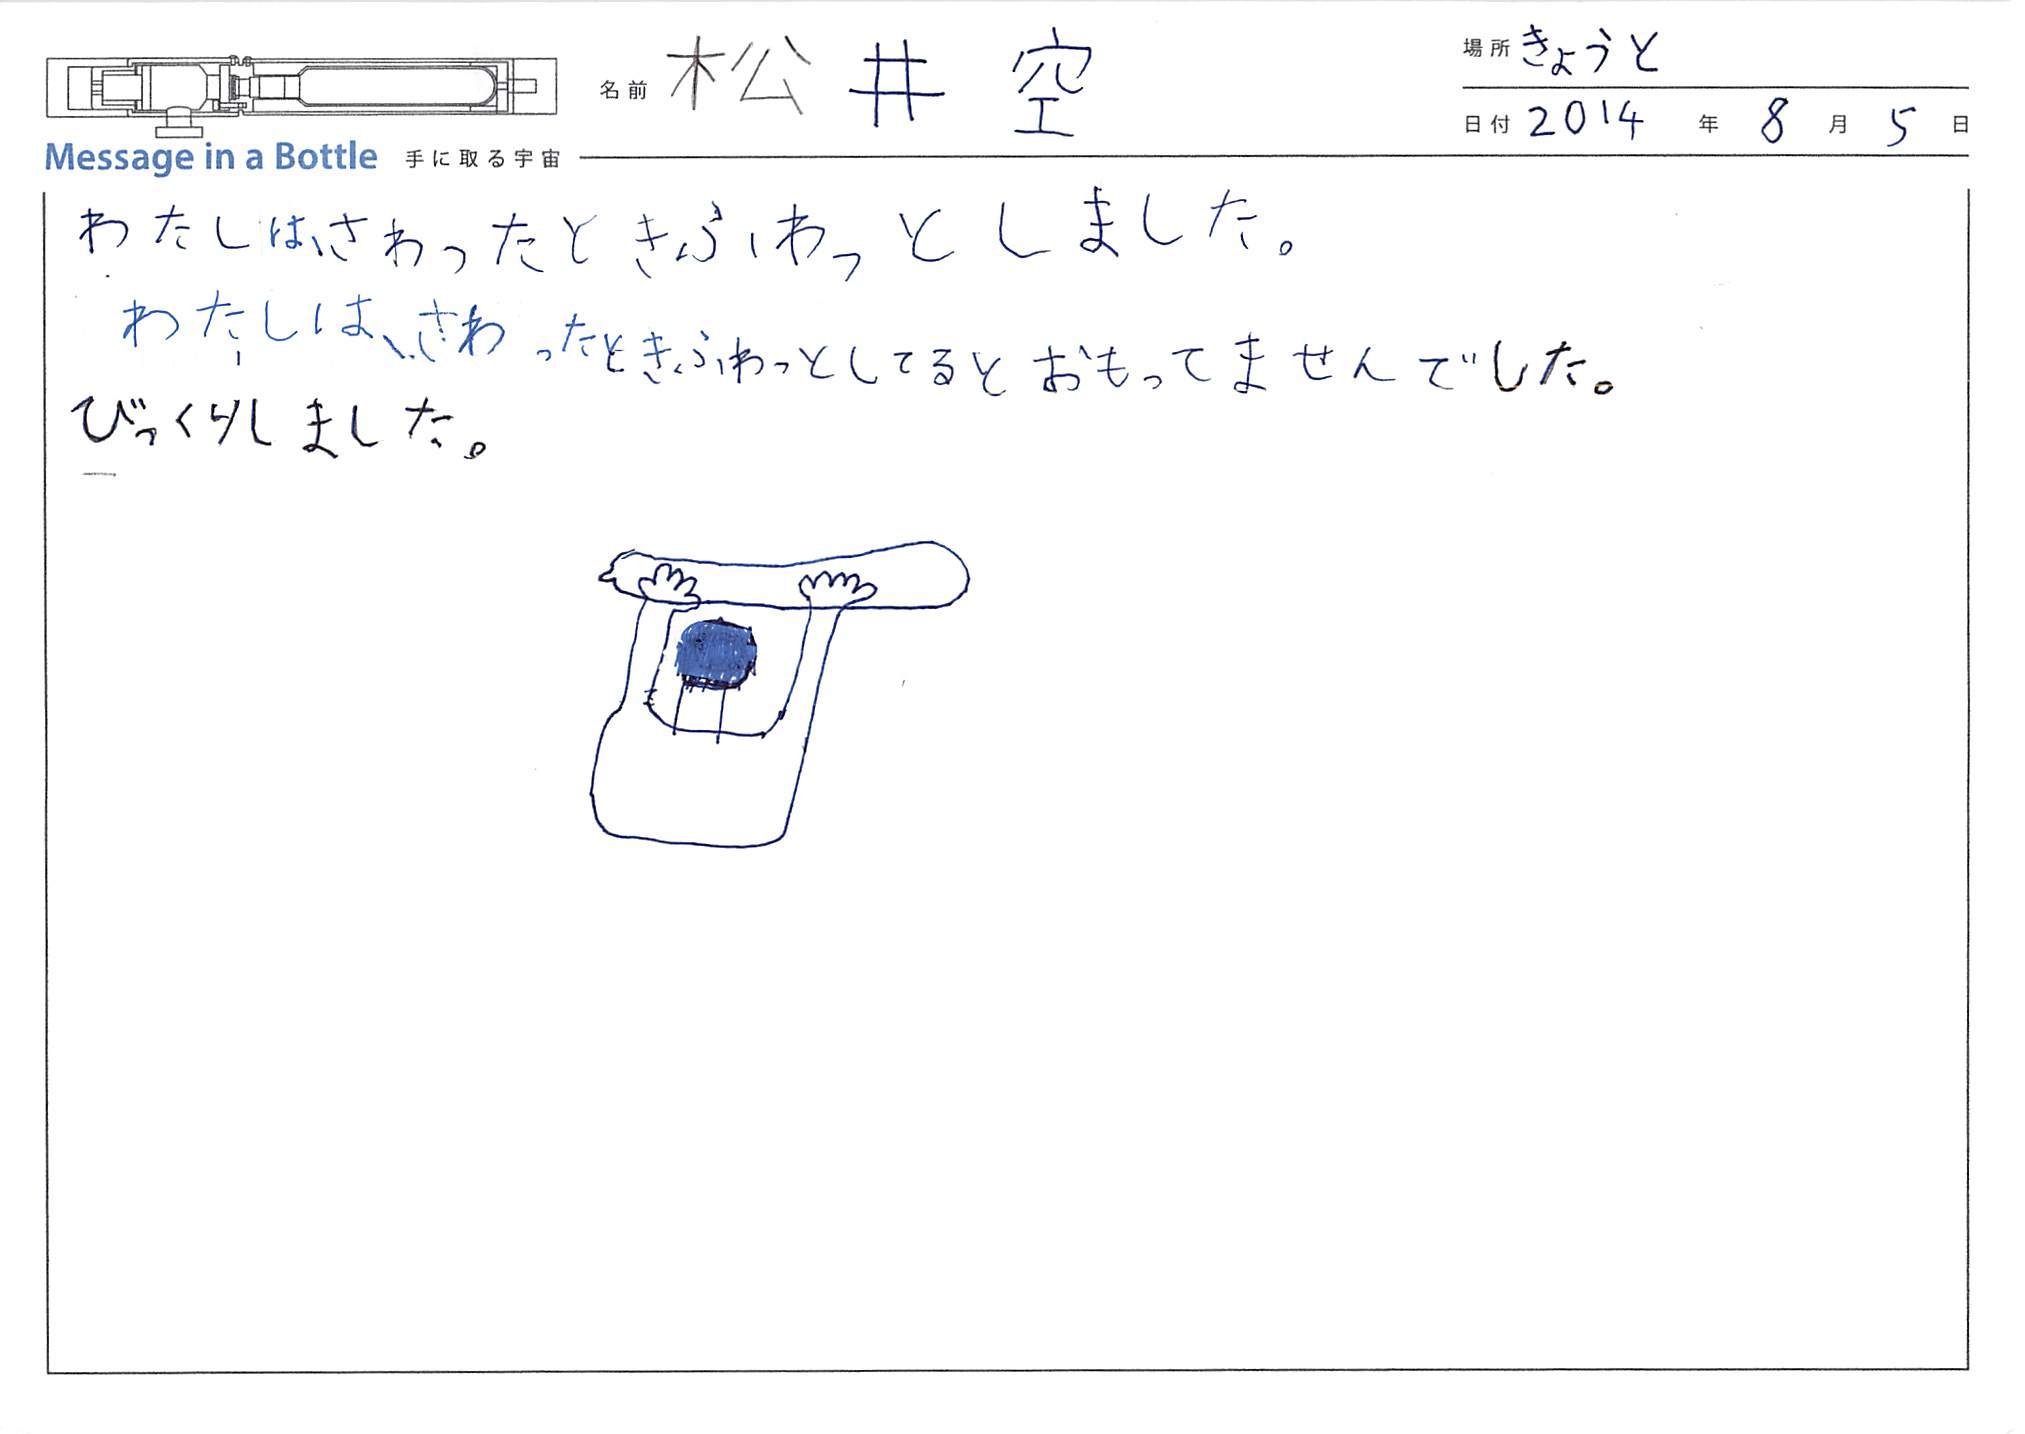 名前 松井 空
場所 きょうと
日付 2014 年 8 月 5 日
Message in a Bottle 手に取る宇宙
わたしは、さわったときふわっとしました。
わたしは、さわったときふわっとしてるとおもってませんでした。
びっくりしました。